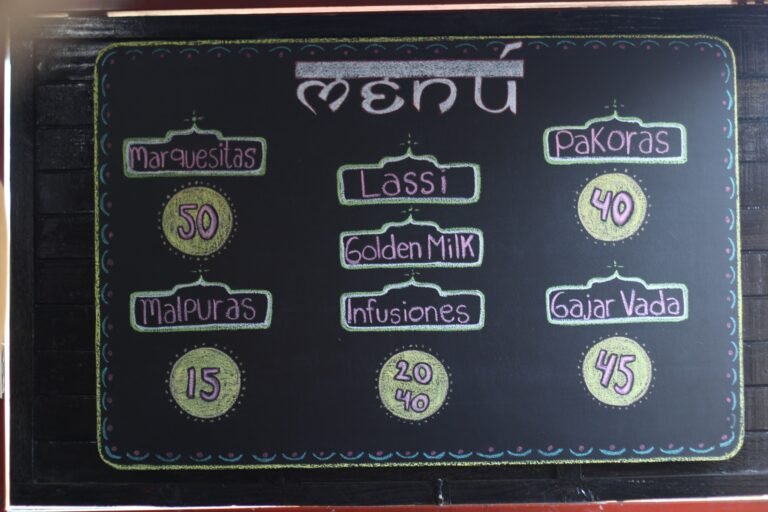 menú
Marquesitas
50
Malpuras
15
Lassi
Golden Milk
Infusiones
20
40
Pakoras
40
Gajar Vada
45